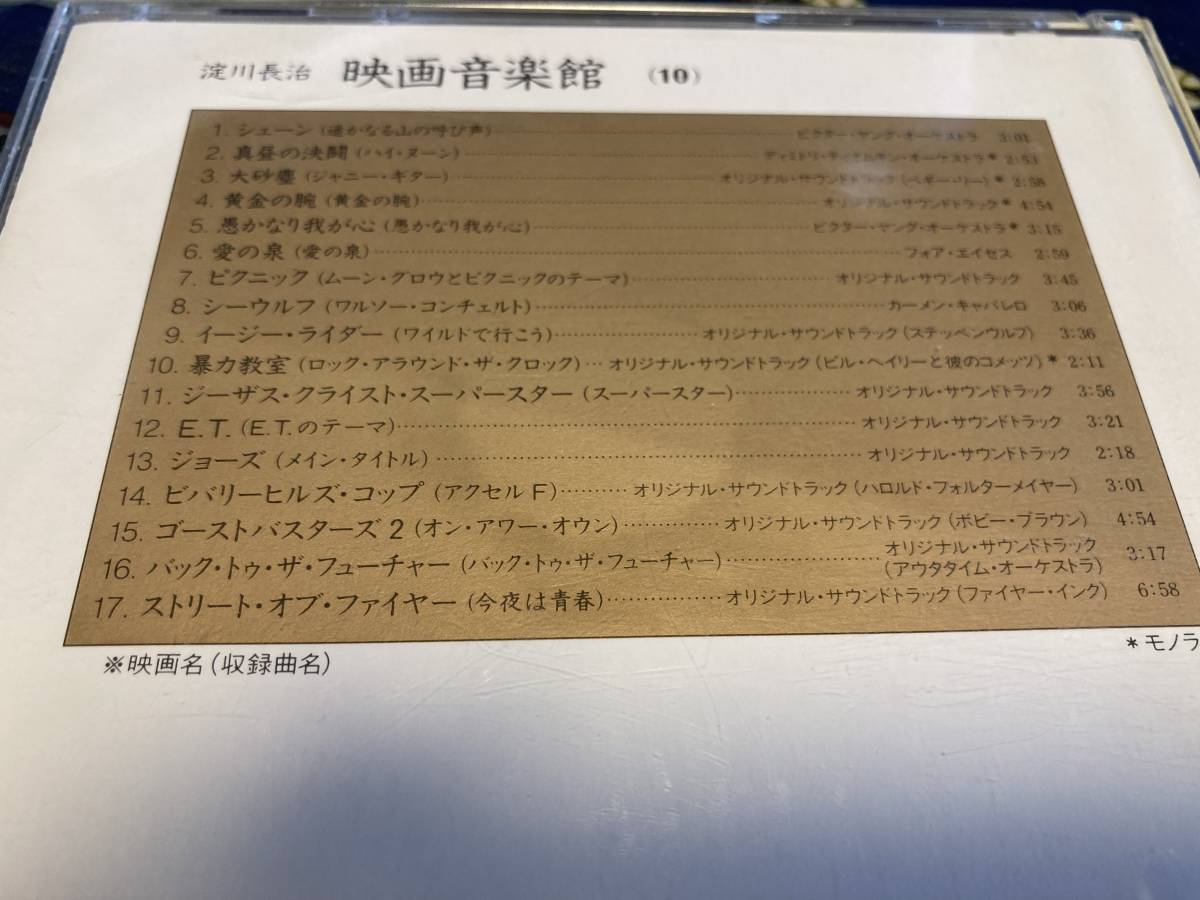 淀川長治 映画音楽館 (10)
1. シェーン (遥かなる山の呼び声) ビクター・ヤング・オーケストラ 3:01
2. 真昼の決闘 (ハイ・ヌーン) ディミトリ・ティオムキン・オーケストラ* 2:53
3. 大砂塵 (ジャニー・ギター) オリジナル・サウンドトラック (ペギー・リー) * 2:58
4. 黄金の腕 (黄金の腕) オリジナル・サウンドトラック* 4:54
5. 愚かなり我が心 (愚かなり我が心) ビクター・ヤング・オーケストラ* 3:15
6. 愛の泉 (愛の泉) フォア・エイセス 2:59
7. ピクニック (ムーン・グロウとピクニックのテーマ) オリジナル・サウンドトラック 3:45
8. シーウルフ (ワルソー・コンチェルト) カーメン・キャバレロ 3:06
9. イージー・ライダー (ワイルドで行こう) オリジナル・サウンドトラック (ステッペンウルフ) 3:36
10. 暴力教室 (ロック・アラウンド・ザ・クロック) オリジナル・サウンドトラック (ビル・ヘイリーと彼のコメッツ) * 2:11
11. ジーザス・クライスト・スーパースター (スーパースター) オリジナル・サウンドトラック 3:56
12. E.T. (E.T.のテーマ) オリジナル・サウンドトラック 3:21
13. ジョーズ (メイン・タイトル) オリジナル・サウンドトラック 2:18
14. ビバリーヒルズ・コップ (アクセルF) オリジナル・サウンドトラック (ハロルド・フォルターメイヤー) 3:01
15. ゴーストバスターズ2 (オン・アワー・オウン) オリジナル・サウンドトラック (ボビー・ブラウン) 4:54
16. バック・トゥ・ザ・フューチャー (バック・トゥ・ザ・フューチャー) オリジナル・サウンドトラック (アウタタイム・オーケストラ) 3:17
17. ストリート・オブ・ファイヤー (今夜は青春) オリジナル・サウンドトラック (ファイヤー・インク) 6:58
※映画名 (収録曲名)
*モノラ